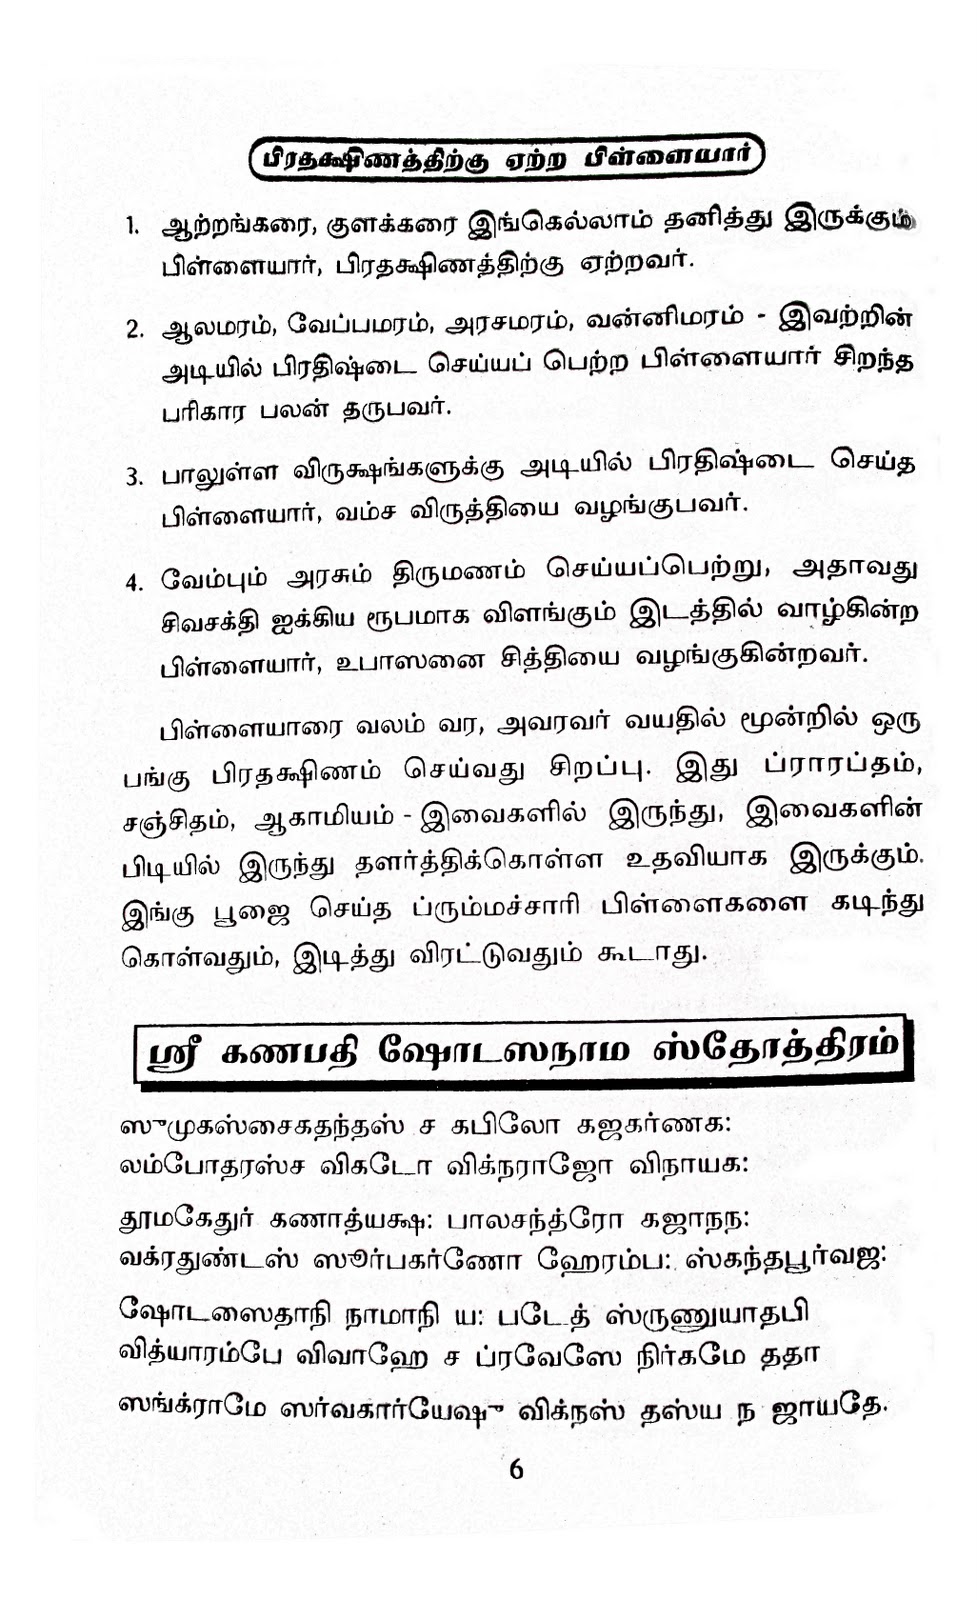 பிரதக்ஷிணத்திற்கு ஏற்ற பிள்ளையார்
1. ஆற்றங்கரை, குளக்கரை இங்கெல்லாம் தனித்து இருக்கும்
பிள்ளையார், பிரதக்ஷிணத்திற்கு ஏற்றவர்.
2. ஆலமரம், வேப்பமரம், அரசமரம், வன்னிமரம் - இவற்றின்
அடியில் பிரதிஷ்டை செய்யப் பெற்ற பிள்ளையார் சிறந்த
பரிகார பலன் தருபவர்.
3. பாலுள்ள விருக்ஷங்களுக்கு அடியில் பிரதிஷ்டை செய்த
பிள்ளையார், வம்ச விருத்தியை வழங்குபவர்.
4. வேம்பும் அரசும் திருமணம் செய்யப்பெற்று, அதாவது
சிவசக்தி ஐக்கிய ரூபமாக விளங்கும் இடத்தில் வாழ்கின்ற
பிள்ளையார், உபாஸனை சித்தியை வழங்குகின்றவர்.
பிள்ளையாரை வலம் வர, அவரவர் வயதில் மூன்றில் ஒரு
பங்கு பிரதக்ஷிணம் செய்வது சிறப்பு. இது ப்ராரப்தம்,
சஞ்சிதம், ஆகாமியம் - இவைகளில் இருந்து, இவைகளின்
பிடியில் இருந்து தளர்த்திக்கொள்ள உதவியாக இருக்கும்.
இங்கு பூஜை செய்த ப்ரும்மச்சாரி பிள்ளைகளை கடிந்து
கொள்வதும், இடித்து விரட்டுவதும் கூடாது.
ஸ்ரீ கணபதி ஷோடஸநாம ஸ்தோத்திரம்
ஸுமுகஸ்சைகதந்தஸ் ச கபிலோ கஜகர்ணக:
லம்போதரஸ்ச விகடோ விக்நராஜோ விநாயக:
தூமகேதுர் கணாத்யக்ஷ: பாலசந்த்ரோ கஜாநந:
வக்ரதுண்டஸ் ஸூர்பகர்ணோ ஹேரம்ப: ஸ்கந்தபூர்வஜ:
ஷோடஸைதாநி நாமாநி ய: படேத் ஸ்ருணுயாதபி
வித்யாரம்பே விவாஹே ச ப்ரவேஸே நிர்கமே ததா
ஸங்க்ராமே ஸர்வகார்யேஷு விக்நஸ் தஸ்ய ந ஜாயதே.
6